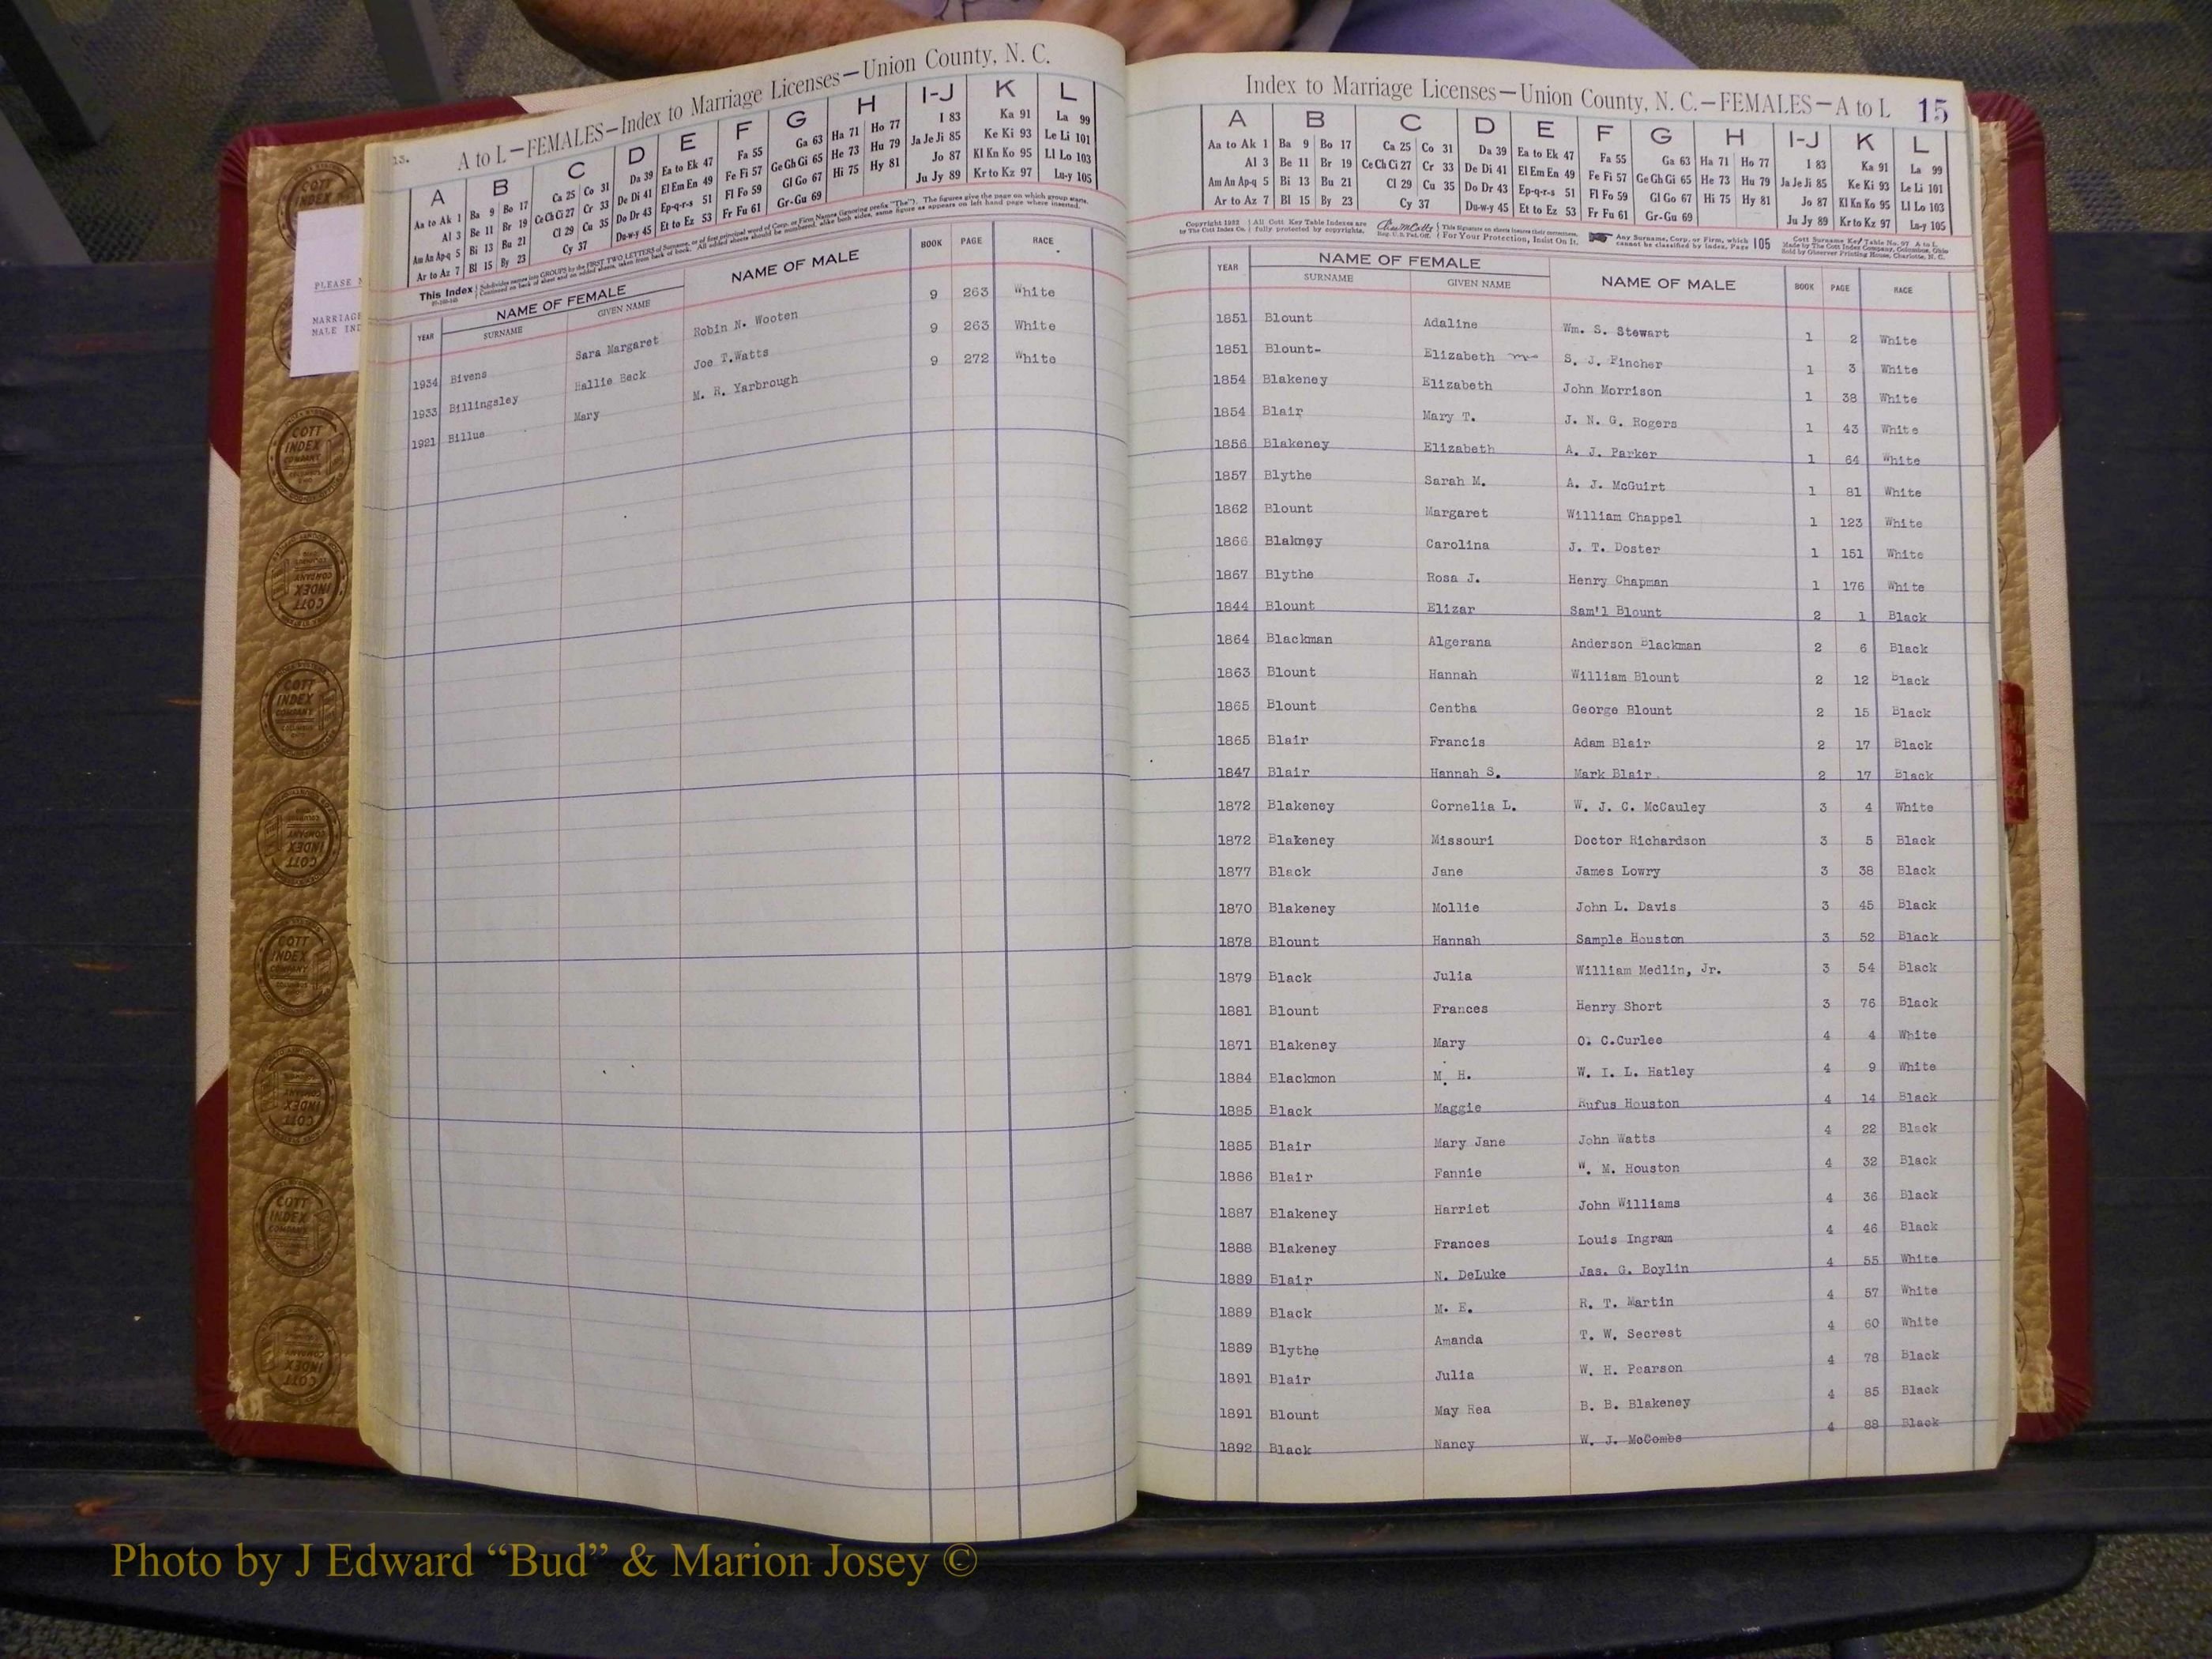 13.
A to L—FEMALES—Index to Marriage Licenses—Union County, N. C.
A B C D E F G H I-J K L
Aa to Ak 1 Ba 9 Bo 17 Ca 25 Co 31 Da 39 Ea to Ek 47 Fa 55 Ga 63 Ha 71 Ho 77 I 83 Ka 91 La 99
Al 3 Be 11 Br 19 Ce Ch Ci 27 Cr 33 De Di 41 El Em En 49 Fe Fi 57 Ge Gh Gi 65 He 73 Hu 79 Ja Je Ji 85 Ke Ki 93 Le Li 101
Am An Ap-q 5 Bi 13 Bu 21 Cl 29 Cu 35 Do Dr 43 Ep-q-r-s 51 Fl Fo 59 Gl Go 67 Hi 75 Hy 81 Jo 87 Kl Kn Ko 95 Ll Lo 103
Ar to Az 7 Bl 15 By 23 Cy 37 Du-w-y 45 Et to Ez 53 Fr Fu 61 Gr-Gu 69 Ju Jy 89 Kr to Kz 97 Lu-y 105
This Index Subdivides names into GROUPS by the FIRST TWO LETTERS of Surname, or of first principal word of Corp. or Firm Names (ignoring prefix "The"). The figures give the page on which group starts.
Continued on back of sheet and on added sheets, taken from back of book. All added sheets should be numbered, alike both sides, same figure as appears on left hand page where inserted.
YEAR NAME OF FEMALE NAME OF MALE BOOK PAGE RACE
SURNAME GIVEN NAME
1934 Bivens Sara Margaret Robin N. Wooten 9 263 White
1933 Billingsley Hallie Beck Joe T.Watts 9 263 White
1921 Billue Mary M. R. Yarbrough 9 272 White
PLEASE
MARRIAGE
MALE IND
Index to Marriage Licenses—Union County, N. C.—FEMALES—A to L 15
A B C D E F G H I-J K L
Aa to Ak 1 Ba 9 Bo 17 Ca 25 Co 31 Da 39 Ea to Ek 47 Fa 55 Ga 63 Ha 71 Ho 77 I 83 Ka 91 La 99
Al 3 Be 11 Br 19 Ce Ch Ci 27 Cr 33 De Di 41 El Em En 49 Fe Fi 57 Ge Gh Gi 65 He 73 Hu 79 Ja Je Ji 85 Ke Ki 93 Le Li 101
Am An Ap-q 5 Bi 13 Bu 21 Cl 29 Cu 35 Do Dr 43 Ep-q-r-s 51 Fl Fo 59 Gl Go 67 Hi 75 Hy 81 Jo 87 Kl Kn Ko 95 Ll Lo 103
Ar to Az 7 Bl 15 By 23 Cy 37 Du-w-y 45 Et to Ez 53 Fr Fu 61 Gr-Gu 69 Ju Jy 89 Kr to Kz 97 Lu-y 105
Copyright 1932 All Cott Key Table Indexes are This Signature on sheets insures their correctness. Any Surname, Corp. or Firm, which 105 Cott Surname Key Table No. 97 A to L
by The Cott Index Co. fully protected by copyrights. Reg. U.S. Pat. Off. For Your Protection, Insist On It. cannot be classified by index, Page Made by The Cott Index Company, Columbus, Ohio
Sold by Observer Printing House, Charlotte, N. C.
YEAR NAME OF FEMALE NAME OF MALE BOOK PAGE RACE
SURNAME GIVEN NAME
1851 Blount Adaline Wm. S. Stewart 1 2 White
1851 Blount- Elizabeth S. J. Fincher 1 3 White
1854 Blakeney Elizabeth John Morrison 1 38 White
1854 Blair Mary T. J. N. G. Rogers 1 43 White
1856 Blakeney Elizabeth A. J. Parker 1 64 White
1857 Blythe Sarah M. A. J. McGuirt 1 81 White
1862 Blount Margaret William Chappel 1 123 White
1866 Blakney Carolina J. T. Doster 1 151 White
1867 Blythe Rosa J. Henry Chapman 1 176 White
1844 Blount Elizar Sam'l Blount 2 1 Black
1864 Blackman Algerana Anderson Blackman 2 6 Black
1863 Blount Hannah William Blount 2 12 Black
1865 Blount Centha George Blount 2 15 Black
1865 Blair Francis Adam Blair 2 17 Black
1847 Blair Hannah S. Mark Blair 2 17 Black
1872 Blakeney Cornelia L. W. J. C. McCauley 3 4 White
1872 Blakeney Missouri Doctor Richardson 3 5 Black
1877 Black Jane James Lowry 3 38 Black
1870 Blakeney Mollie John L. Davis 3 45 Black
1878 Blount Hannah Sample Houston 3 52 Black
1879 Black Julia William Medlin, Jr. 3 54 Black
1881 Blount Frances Henry Short 3 76 Black
1871 Blakeney Mary O. C.Curlee 4 4 White
1884 Blackmon M. H. W. I. L. Hatley 4 9 White
1885 Black Maggie Rufus Houston 4 14 Black
1885 Blair Mary Jane John Watts 4 22 Black
1886 Blair Fannie W. M. Houston 4 32 Black
1887 Blakeney Harriet John Williams 4 36 Black
1888 Blakeney Frances Louis Ingram 4 46 Black
1889 Blair N. DeLuke Jas. G. Boylin 4 55 White
1889 Black M. E. R. T. Martin 4 57 White
1889 Blythe Amanda T. W. Secrest 4 60 White
1891 Blair Julia W. H. Pearson 4 78 Black
1891 Blount May Rea B. B. Blakeney 4 85 Black
1892 Black Nancy W. J. McCombs 4 88 Black
COTT INDEX COMPANY
Photo by J Edward “Bud” & Marion Josey ©